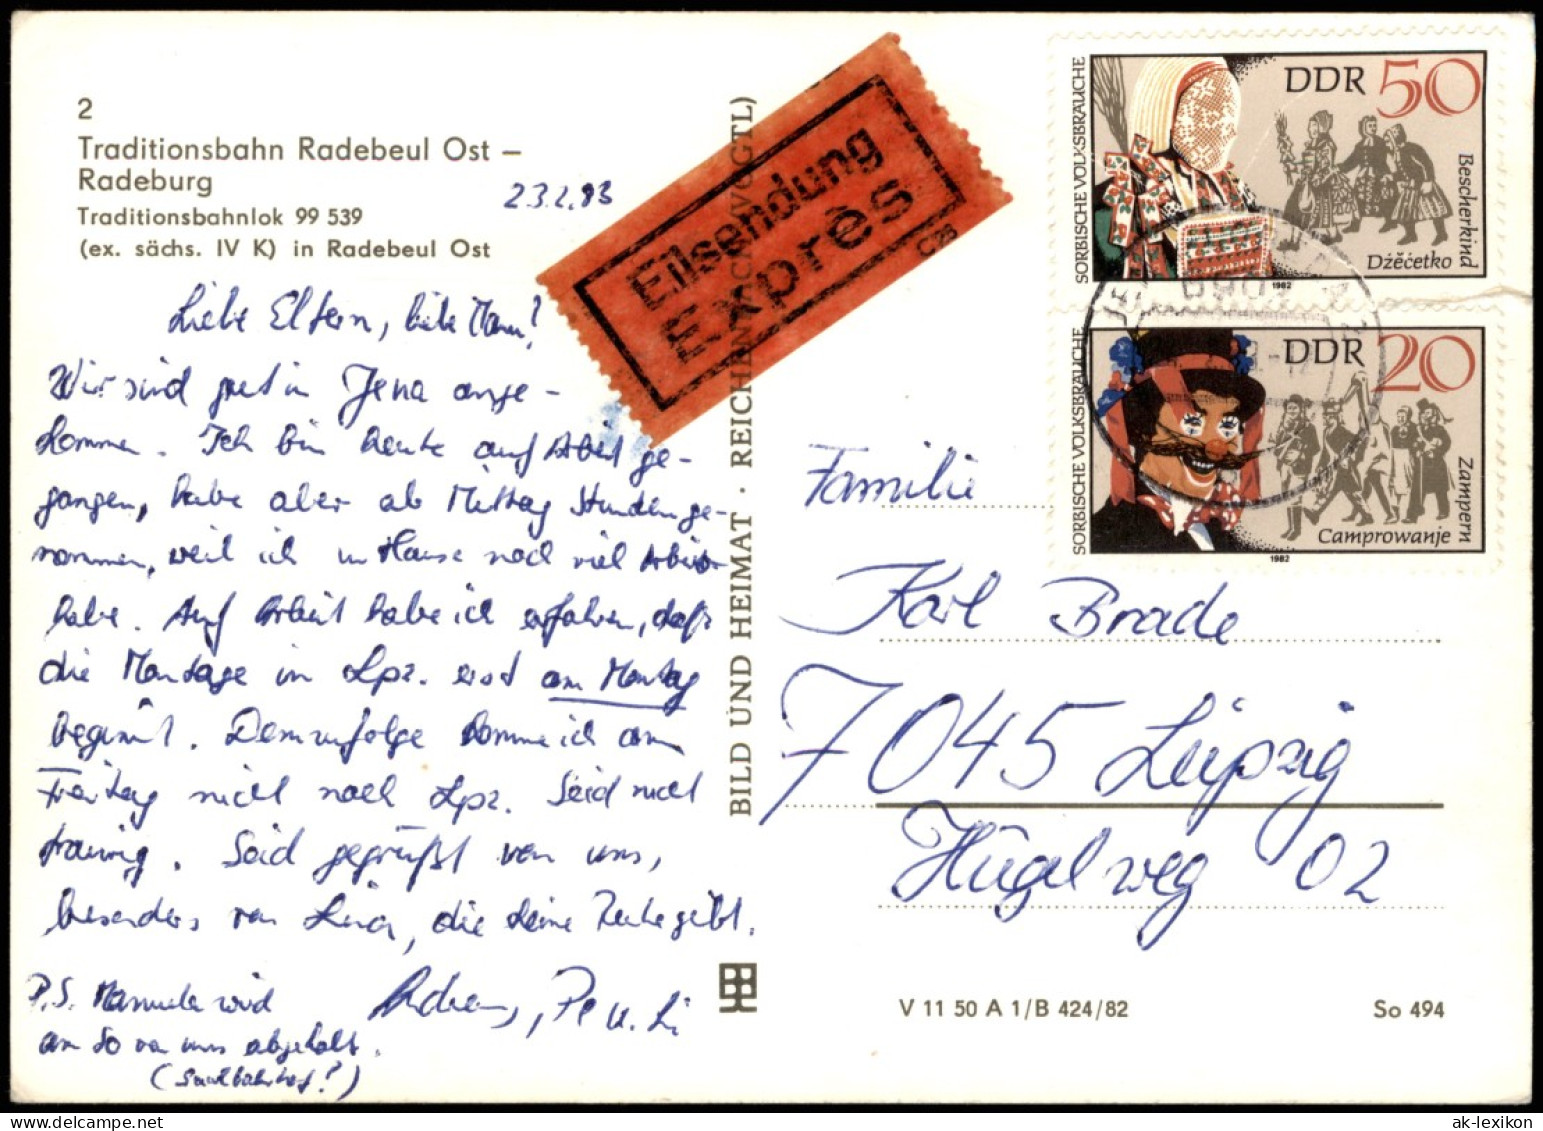 2
Traditionsbahn Radebeul Ost –
Radeburg
Traditionsbahnlok 99 539
(ex. sächs. IV K) in Radebeul Ost
23.2.83
Liebe Eltern, liebe
Wir sind gut in Jena ange-
kommen. Ich bin heute auf Arbeit ge-
gangen, habe aber ab Mittag Stunden ge-
nommen, weil ich im Hause noch viel Arbeit
habe. Auf Arbeit habe ich erfahren, daß
die Montage in Lpz. erst am Montag
beginnt. Demzufolge komme ich am
Freitag nicht nach Lpz. Seid nicht
traurig. Seid gegrüßt von uns,
besonders von die keine Ruhe gibt.
P.S. Manuela wird
am So von uns abgeholt.
(Saalbahnhof?)
BILD UND HEIMAT · REICHENBACH (VOGTL)
Eilsendung
Exprès
C28
SORBISCHE VOLKSBRÄUCHE
DDR 50
Bescherkind
Dźěćetko
1982
SORBISCHE VOLKSBRÄUCHE
DDR 20
Zampern
Camprowanje
1982
6901
Familie
Karl Brade
7045 Leipzig
Hügelweg 02
V 11 50 A 1/B 424/82
So 494
ak-lexikon.com